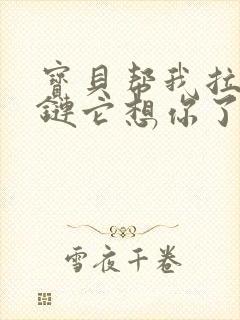 寶貝幫我拉
鏈它想你了
雪夜千卷